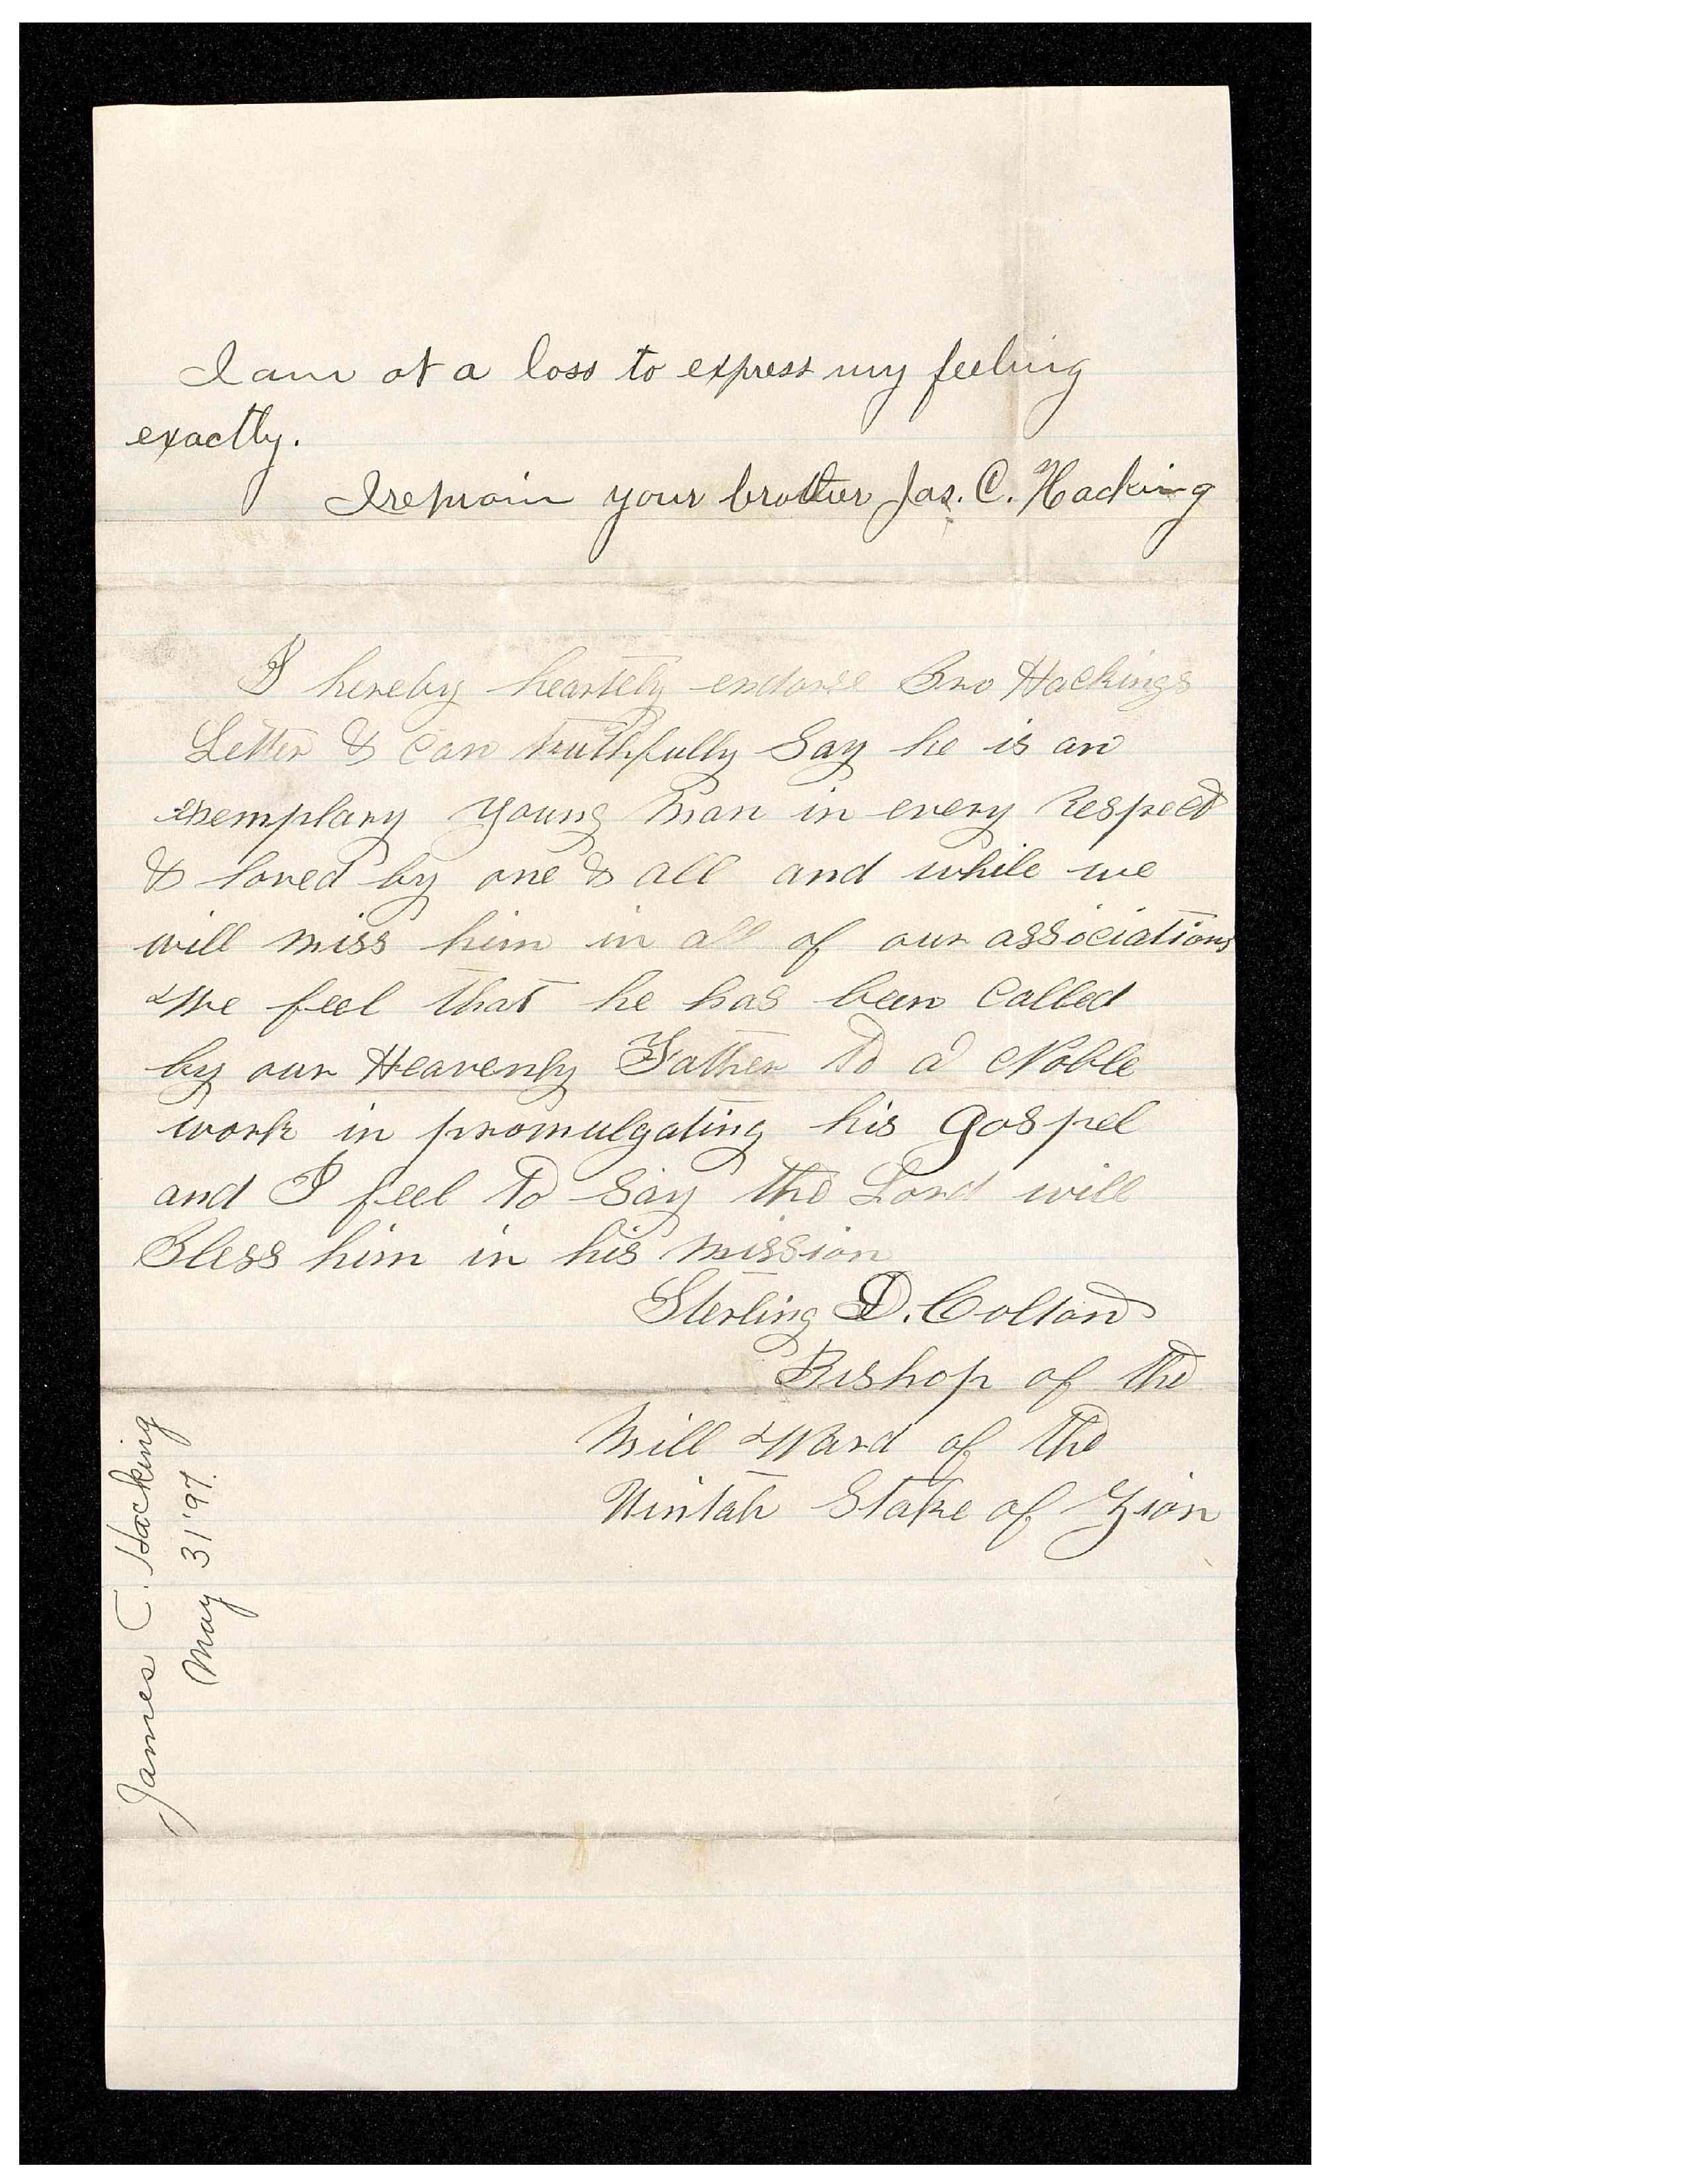 I am at a loss to express my feeling
exactly.
I remain your brother Jas. C. Hacking
I hereby heartely endorse Bro Hackings
Letter & can truthfully Say he is an
exemplary young man in every respect
& loved by one & all and while we
will miss him in all of our associations
We feel that he has been Called
by our Heavenly Father to a Noble
work in promulgating his gospel
and I feel to Say the Lord will
Bless him in his mission
Sterling D. Colton
Bishop of the
Mill Ward of the
Uintah Stake of Zion
James C. Hacking
May 31 '97.